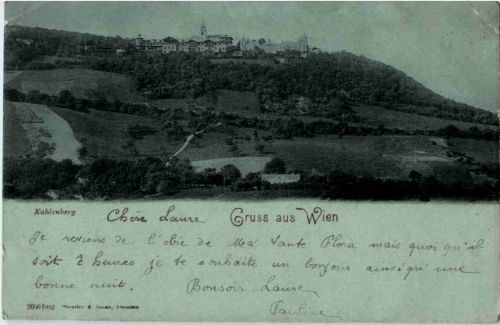 Kahlenberg
Chère Laure
Gruss aus Wien
Je reviens de l'obie de Ma Tante Flora mais quoi qu'il
soit 7 heures je te souhaite un bonjour ainsi qu'une
bonne nuit. Bonsoir Laure
Pauline
2050 bug